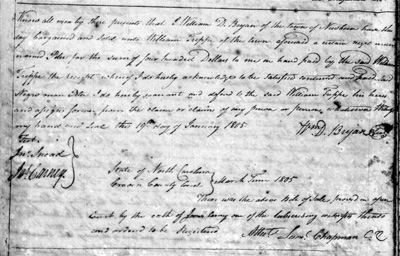 Know all men by these presents that I William D. Bryan of the town of Newbern have this
day bargained and sold unto William Trippe of the town aforesaid a certain negro man
named Peter for the sum of four hundred Dollars to me in hand paid by the said William
Trippe the receipt whereof I do hereby acknowledge to be satisfied contented and paid said
Negro man Peter I do hereby warrant and defend to the said William Trippe his heirs
and assigns forever from the claim or claims of any person or persons whatsoever Witness
my hand and seal this 19th day of January 1805
Wm D. Bryan
Test.
Jas Carney
State of North Carolina
Craven County Court
March Term 1805
Then was the above Bill of Sale proved in open
Court by the oath of James Carney one of the subscribing witnesses thereto
and ordered to be Registered
Attest Saml Chapman C.C.